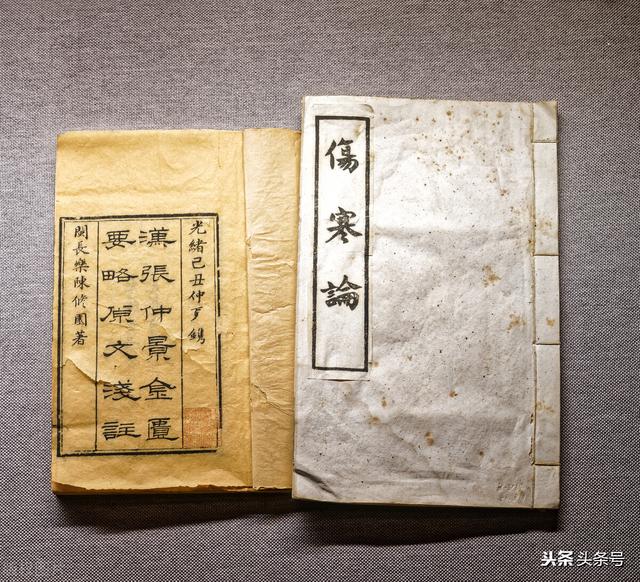 傷寒論
光緒己丑仲鐫
漢張仲景金匱
要略原文淺註
閩長樂陳修園著
头条 头条号